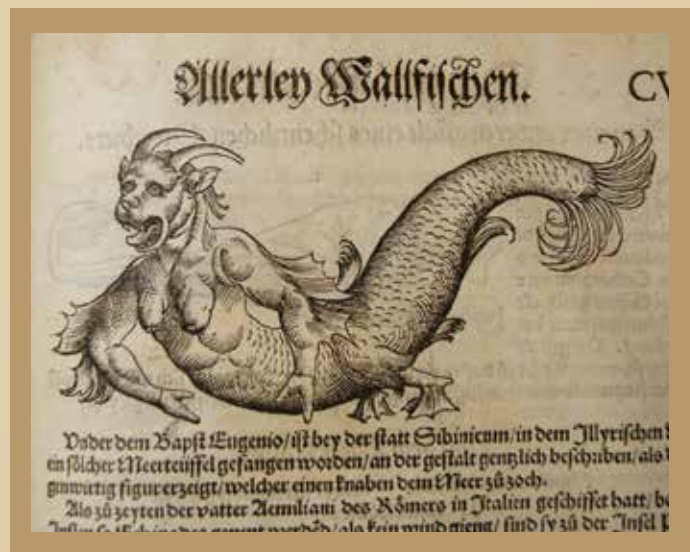 Allerley Wallfischen. CV
Vnder dem Bapst Eugenio/ist bey der statt Sibinicum/in dem Illyrischen
ein sölcher Meerteüffel gefangen worden/an der gestalt gentzlich beschriben/als
genwirtig figur erzeigt/welcher einen knaben dem Meer zů zoch.
Als zů zeyten der vatter Aemiliani des Römers in Italien geschiffet hatt/be
Inseln so Echinades genent werdẽd/als kein wind gieng/sind sy zů der Insel P